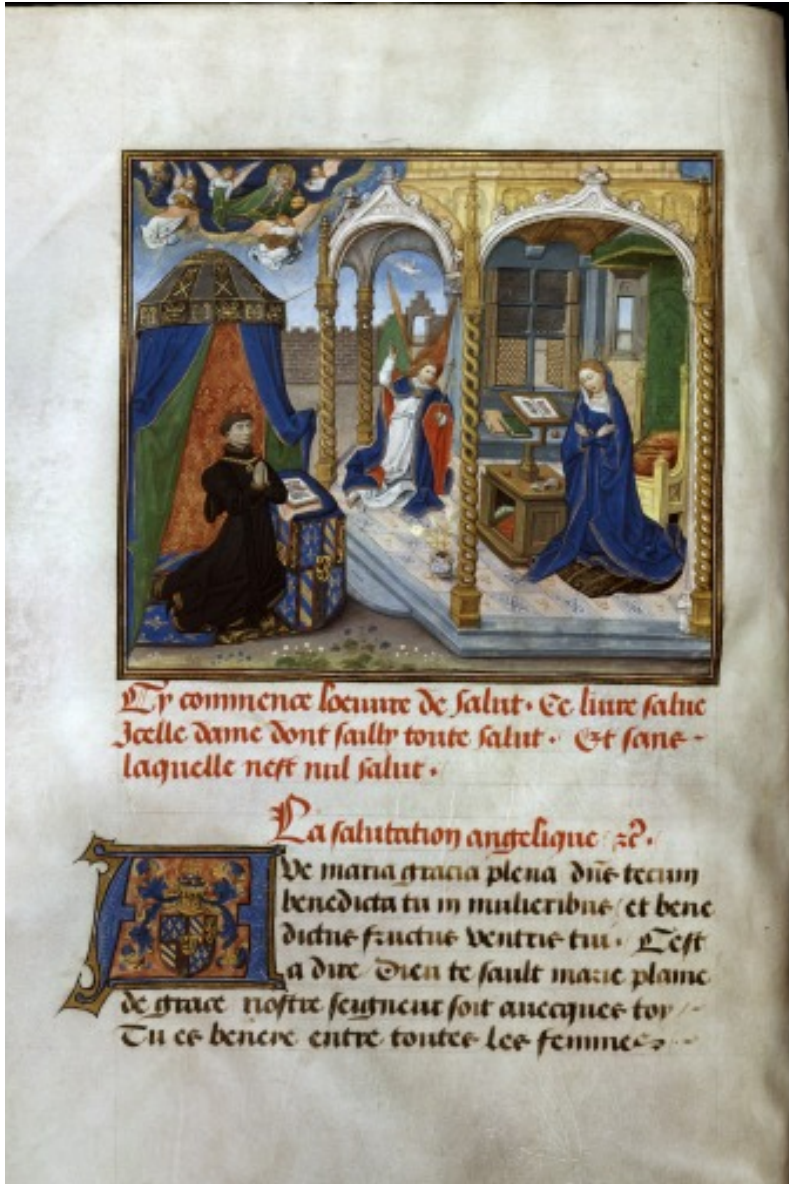 Cy commence loeuure de salut. Ce liure salue
Icelle dame dont sailly toute salut. Et sans
laquelle nest nul salut.
La salutation angelique
Ave maria gracia plena dñs tecum
benedicta tu in mulieribus et bene
dictus fructus ventris tui. Cest
a dire Dieu te sault marie plaine
de grace nostre seigneur soit auecques toy
Tu es beneie entre toutes les femmes